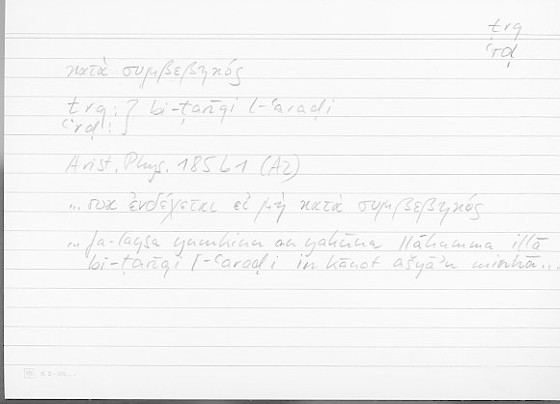 ṭrq
ʿrḍ
κατὰ συμβεβηκός
ṭrq: } bi-ṭarīqi l-ʿaraḍi
ʿrḍ:
Arist. Phys. 185b1 (A2)
... οὐκ ἐνδέχεται εἰ μὴ κατὰ συμβεβηκός
... fa-laysa yumkinu an yakūna llāhumma illā
bi-ṭarīqi l-ʿaraḍi in kānat ašyāʾu minhā...